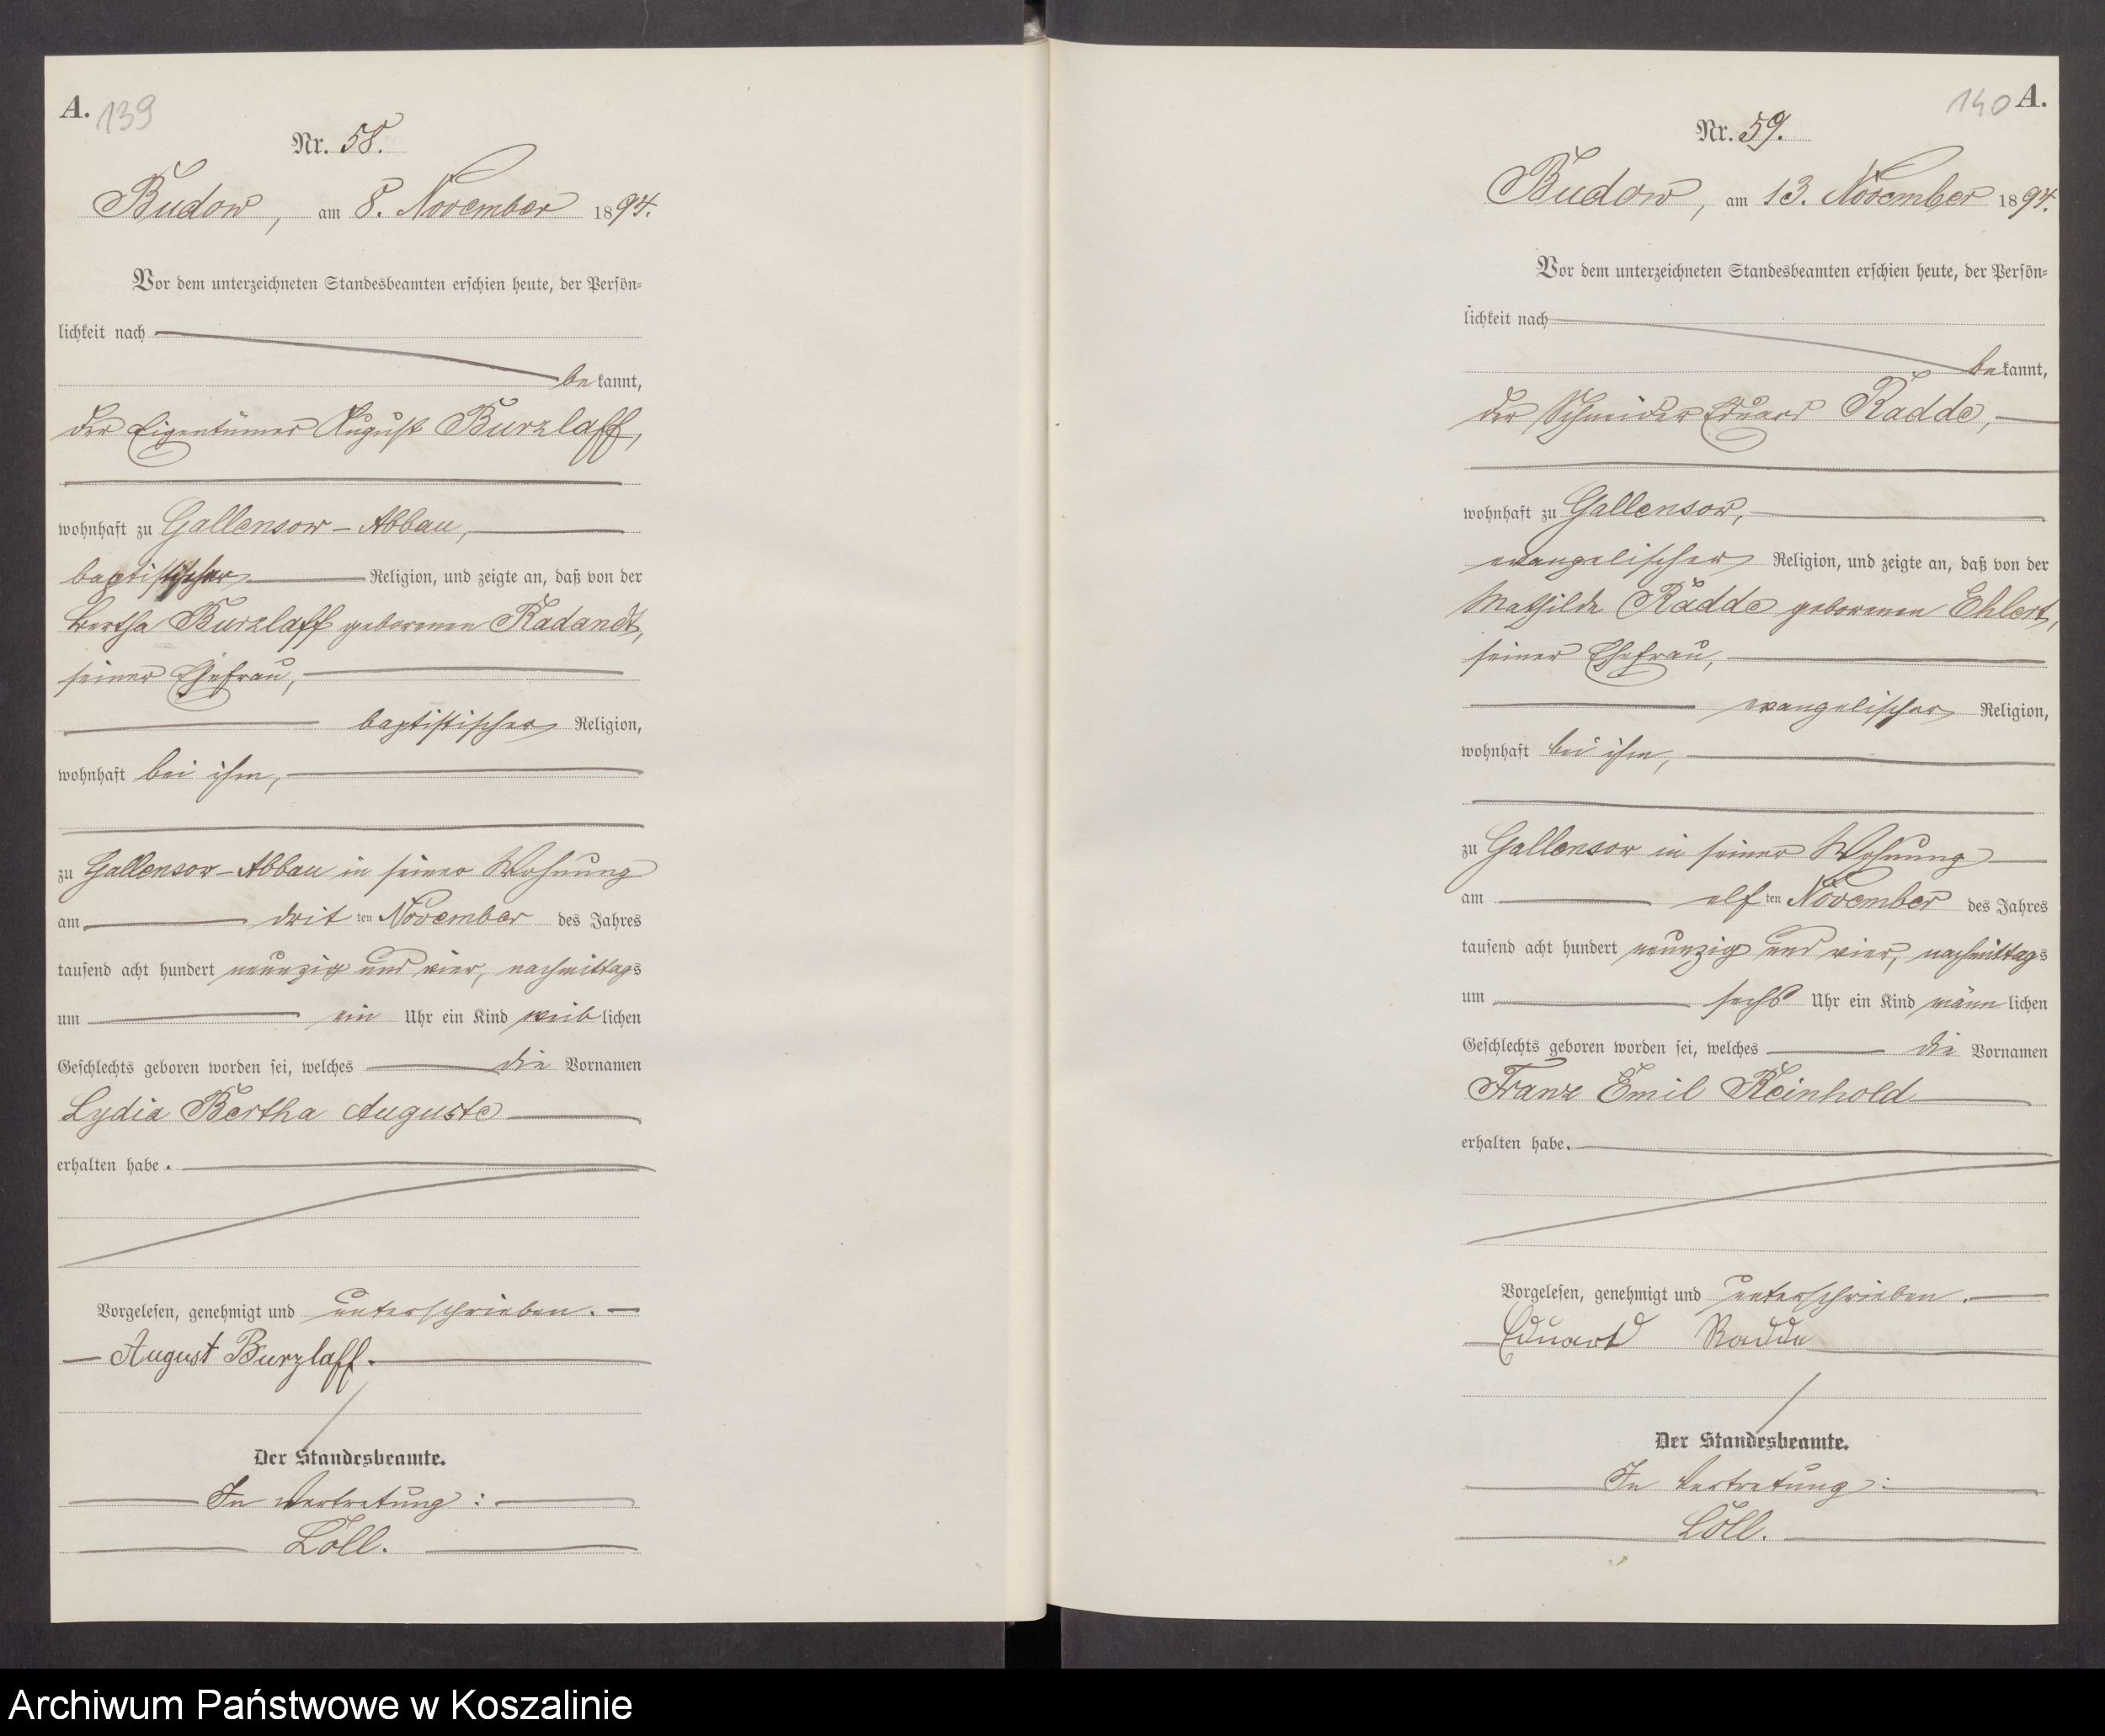 A. 139
Nr. 58.
Budow, am 8. November 1894.
Vor dem unterzeichneten Standesbeamten erschien heute, der Persön-
lichkeit nach
bekannt,
der Eigentümer August Burzlaff,
wohnhaft zu Gallensow-Abbau,
baptistischer Religion, und zeigte an, daß von der
Bertha Burzlaff geborenen Radandt,
seiner Ehefrau,
baptistischer Religion,
wohnhaft bei ihm,
zu Gallensow-Abbau in seiner Wohnung
am dritten November des Jahres
tausend acht hundert neunzig und vier, nachmittags
um ein Uhr ein Kind weiblichen
Geschlechts geboren worden sei, welches die Vornamen
Lydia Bertha Auguste
erhalten habe.
Vorgelesen, genehmigt und unterschrieben.
August Burzlaff.
Der Standesbeamte.
In Vertretung:
Löll.
140 A.
Nr. 59.
Budow, am 13. November 1894.
Vor dem unterzeichneten Standesbeamten erschien heute, der Persön-
lichkeit nach
bekannt,
der Schneider Eduard Radde,
wohnhaft zu Gallensow,
evangelischer Religion, und zeigte an, daß von der
Mathilde Radde geborenen Ehlert,
seiner Ehefrau,
evangelischer Religion,
wohnhaft bei ihm,
zu Gallensow in seiner Wohnung
am elften November des Jahres
tausend acht hundert neunzig und vier, nachmittags
um sechs Uhr ein Kind männlichen
Geschlechts geboren worden sei, welches die Vornamen
Franz Emil Reinhold
erhalten habe.
Vorgelesen, genehmigt und unterschrieben.
Eduard Radde
Der Standesbeamte.
In Vertretung:
Löll.
Archiwum Państwowe w Koszalinie